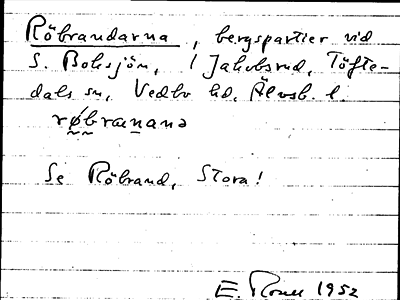 Röbrandarna, bergspartier vid
S. Boksjön, i Jakobsrud, Töfte-
dals sn, Vedbo hd, Älvsb. l.
røbrænana
Se Röbrand, Stora!
E. 1952